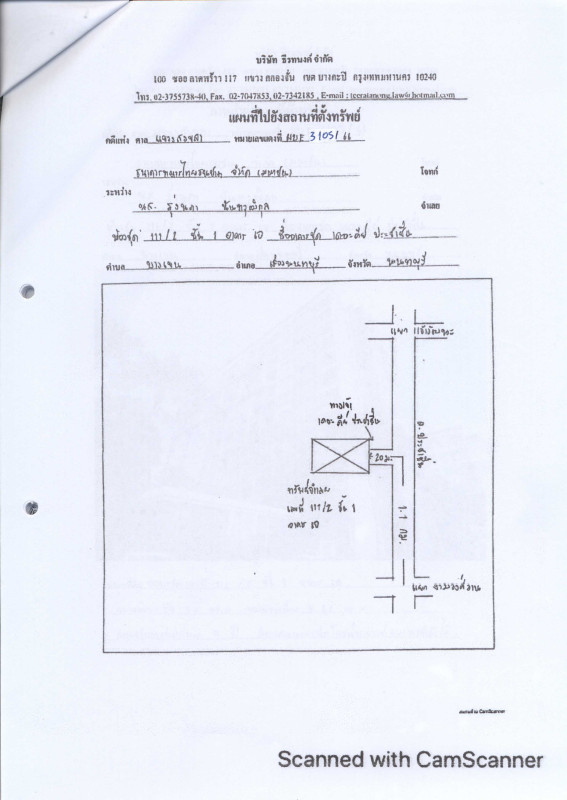 บริษัท ธีรทนงค์ จำกัด
100 ซอย ลาดพร้าว 117 แขวง คลองจั่น เขต บางกะปิ กรุงเทพมหานคร 10240
โทร. 02-3755738-40, Fax. 02-7047853, 02-7342185 , E-mail : teeratanong.law@hotmail.com
แผนที่ไปยังสถานที่ตั้งทรัพย์
คดีแพ่ง ศาล แขวงสงขลา หมายเลขแดงที่ ผบE 3105/66
ธนาคารทหารไทยธนชาต จำกัด (มหาชน) โจทก์
ระหว่าง
นส. รุ่งนภา จำเลย
ห้องชุด 111/2 ชั้น 1 อาคาร ชื่ออาคารชุด เดอะคีย์ ประชาชื่น
ตำบล บางเขน อำเภอ เมืองนนทบุรี จังหวัด นนทบุรี
แยก แจ้งวัฒนะ
ทางเข้า
เดอะ คีย์ ประชาชื่น
20 ม.
ถ. ประชาชื่น
ทรัพย์จำนอง
เลขที่ 111/2 ชั้น 1
อาคาร
1.1 กม.
แยก งามวงศ์วาน
สแกนด้วย CamScanner
Scanned with CamScanner